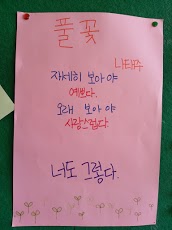 풀꽃
나태주
자세히 보아야
예쁘다.
오래 보아야
사랑스럽다
너도 그렇다.